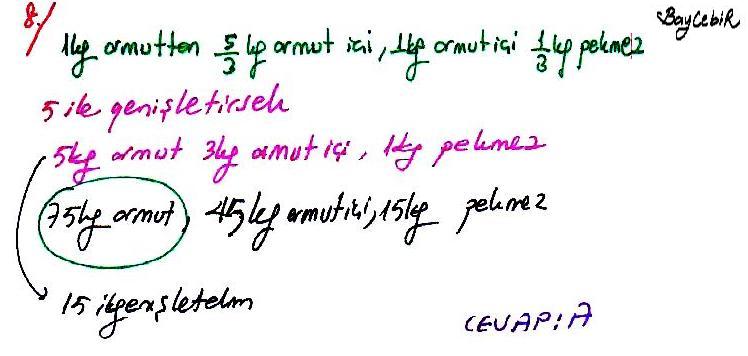 8./
BayCebiR
1kg armutten 5/3 kg armut içi, 1kg armut içi 1/3 kg pekmez
5 ile genişletirsek
5kg armut 3kg armut içi, 1kg pekmez
75kg armut, 45kg armut içi, 15kg pekmez
15 ile genişletelim
CEVAP: A